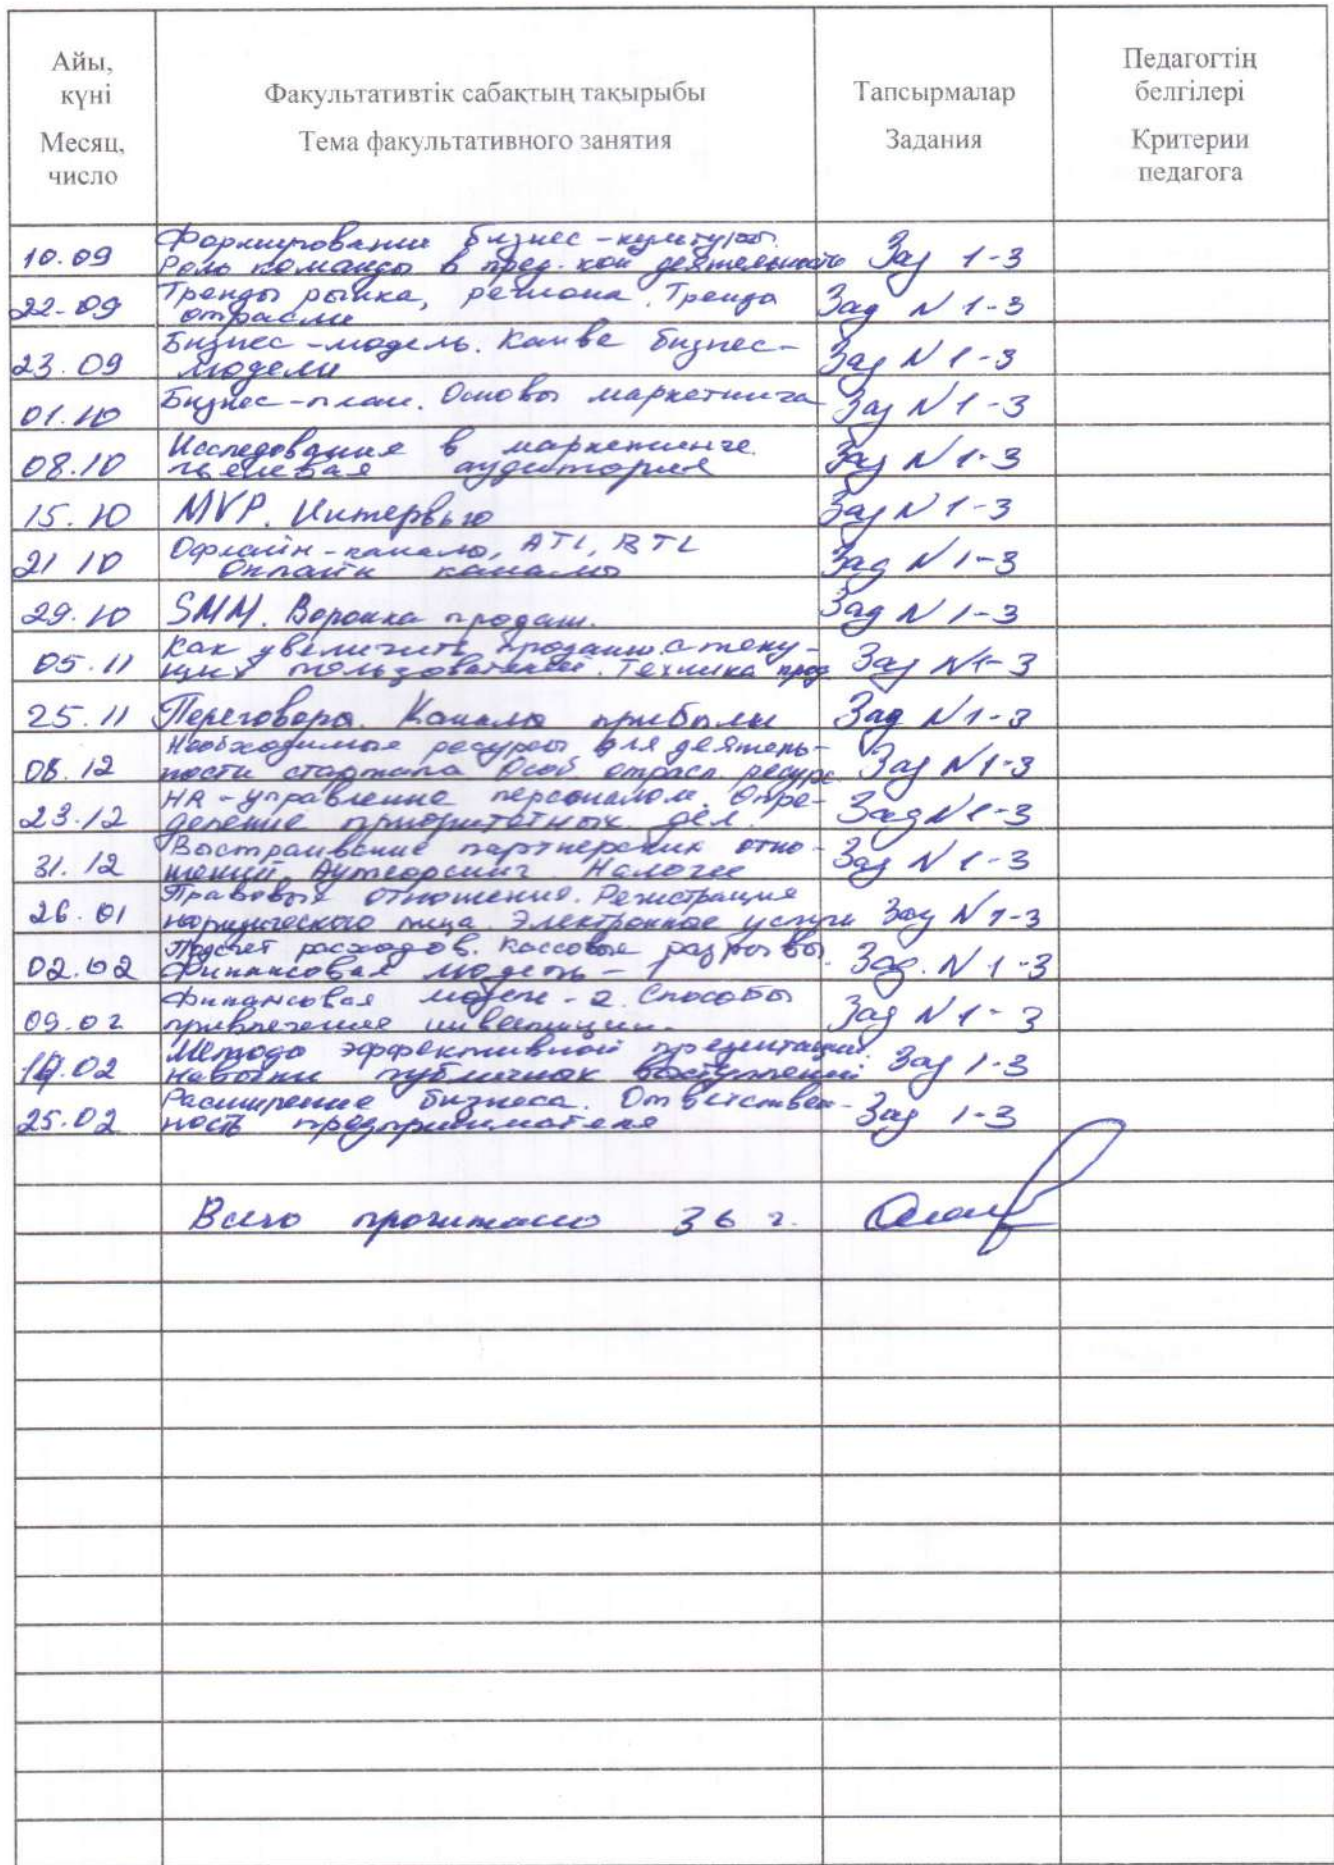 Айы,
күні
Месяц,
число
Факультативтік сабақтың тақырыбы
Тема факультативного занятия
Тапсырмалар
Задания
Педагогтің
белгілері
Критерии
педагога
10.09 Формирование бизнес-культуры.
Роль команды в пред-кой деятельности Зад 1-3
22-09 Тренды рынка, региона. Тренда
отрасли Зад N 1-3
23.09 Бизнес-модель. Канве бизнес-
модели Зад N 1-3
01.10 Бизнес-план. Основы маркетинга Зад N 1-3
08.10 Исследование в маркетинге.
целевая аудитория Зад N 1-3
15.10 MVP. Интервью Зад N 1-3
21 10 Офлайн-каналы, ATL, BTL
Онлайн каналы Зад N 1-3
29.10 SMM. Воронка продаж. Зад N 1-3
05.11 Как увеличить продажи с теку-
щих пользователей. Техника прод Зад N1-3
25.11 Переговоры. Каналы прибыли Зад N1-3
08.12 Необходимые ресурсы для деятель-
ности стартапа Особ. отрасл. ресурс. Зад N1-3
23.12 HR-управление персоналом. Опре-
деление приоритетных дел. Зад N1-3
31.12 Выстраивание партнерских отно-
шений. Аутсорсинг. Налоги Зад N 1-3
26.01 Правовые отношения. Регистрация
юридического лица. Электронные услуги Зад N 1-3
02.02 Подсчет расходов. Кассовые разрывы.
Финансовая модель-1 Зад. N 1-3
09.02 Финансовая модель-2. Способы
привлечения инвестиции. Зад N 1-3
02 Методы эффективной презентации.
Навыки публичных выступлений Зад 1-3
25.02 Расширение бизнеса. Ответствен-
ность предпринимателя Зад 1-3
Всего прочитано 36 г.